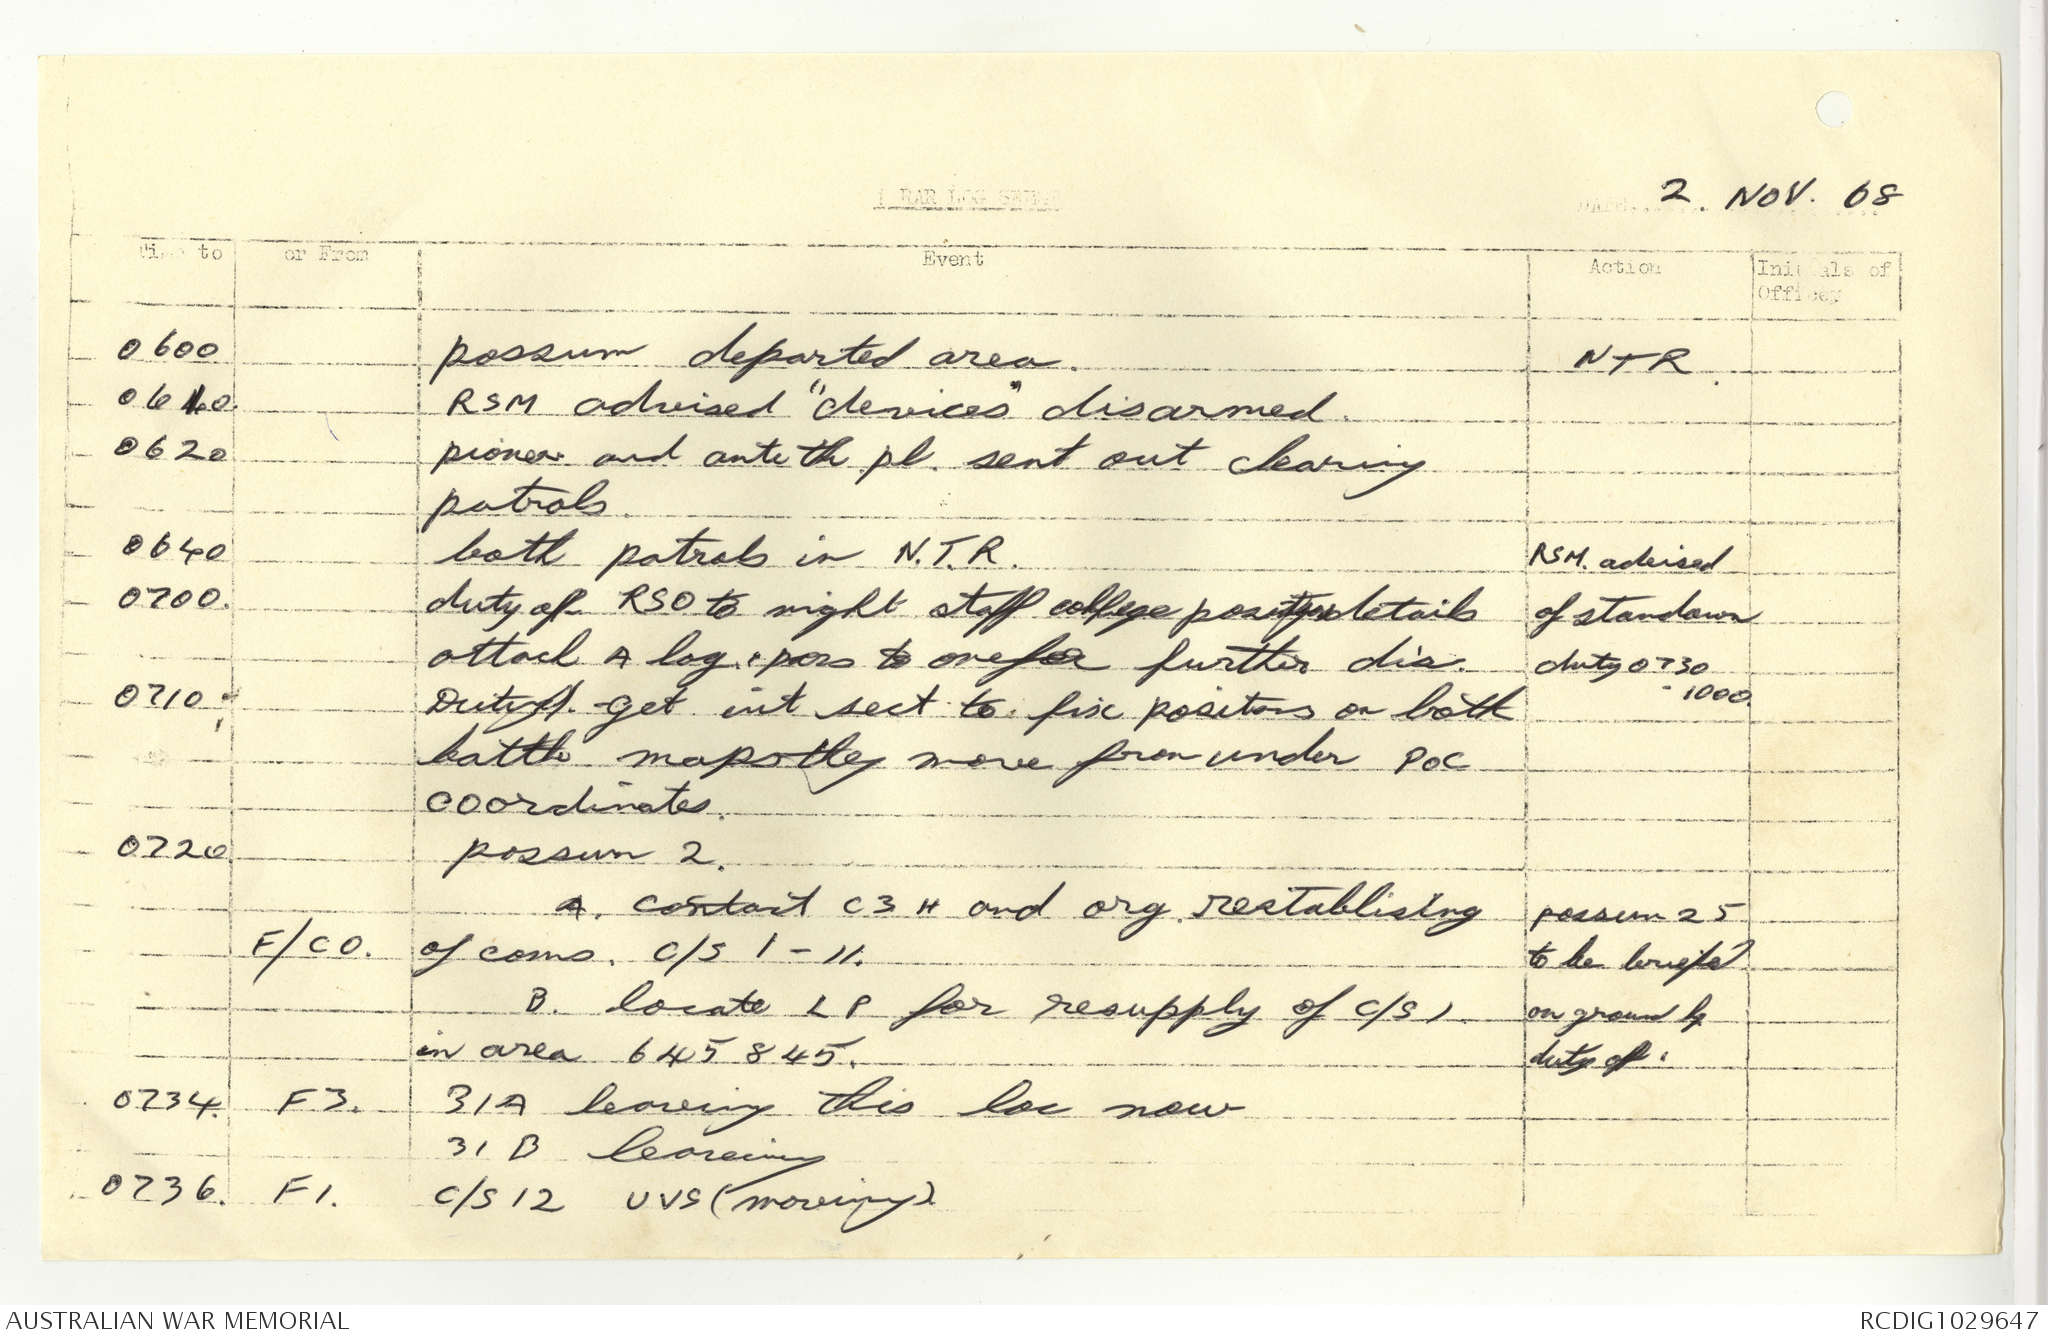 1 RAR LOG SHEET
DATE 2. NOV. 68
Time to or From Event Action Initials of
Officer
0600 possum departed area. NTR
0610. RSM advised "devices" disarmed.
0620 pioneer and anti tk pl. sent out clearing
patrols.
0640 both patrols in N.T.R. RSM. advised
0700. duty off RSO to night staff college position details of standown
attach A log. to further dis. duty 0730
- 1000.
0710 Duty off. get int sect to fix positons on both
battle maps they move from under POC
coordinates.
0720 possum 2.
A. contact C3H and org. restablising possum 25
F/CO. of coms. C/S 1 - 11. to be briefed
B. locate LP for resupply of C/S 1. on ground by
in area 645845. duty off.
0734. F3. 31A leaving this loc now
31B leaving
0736. F1. C/S 12 UVS (moveing).
AUSTRALIAN WAR MEMORIAL RCDIG1029647